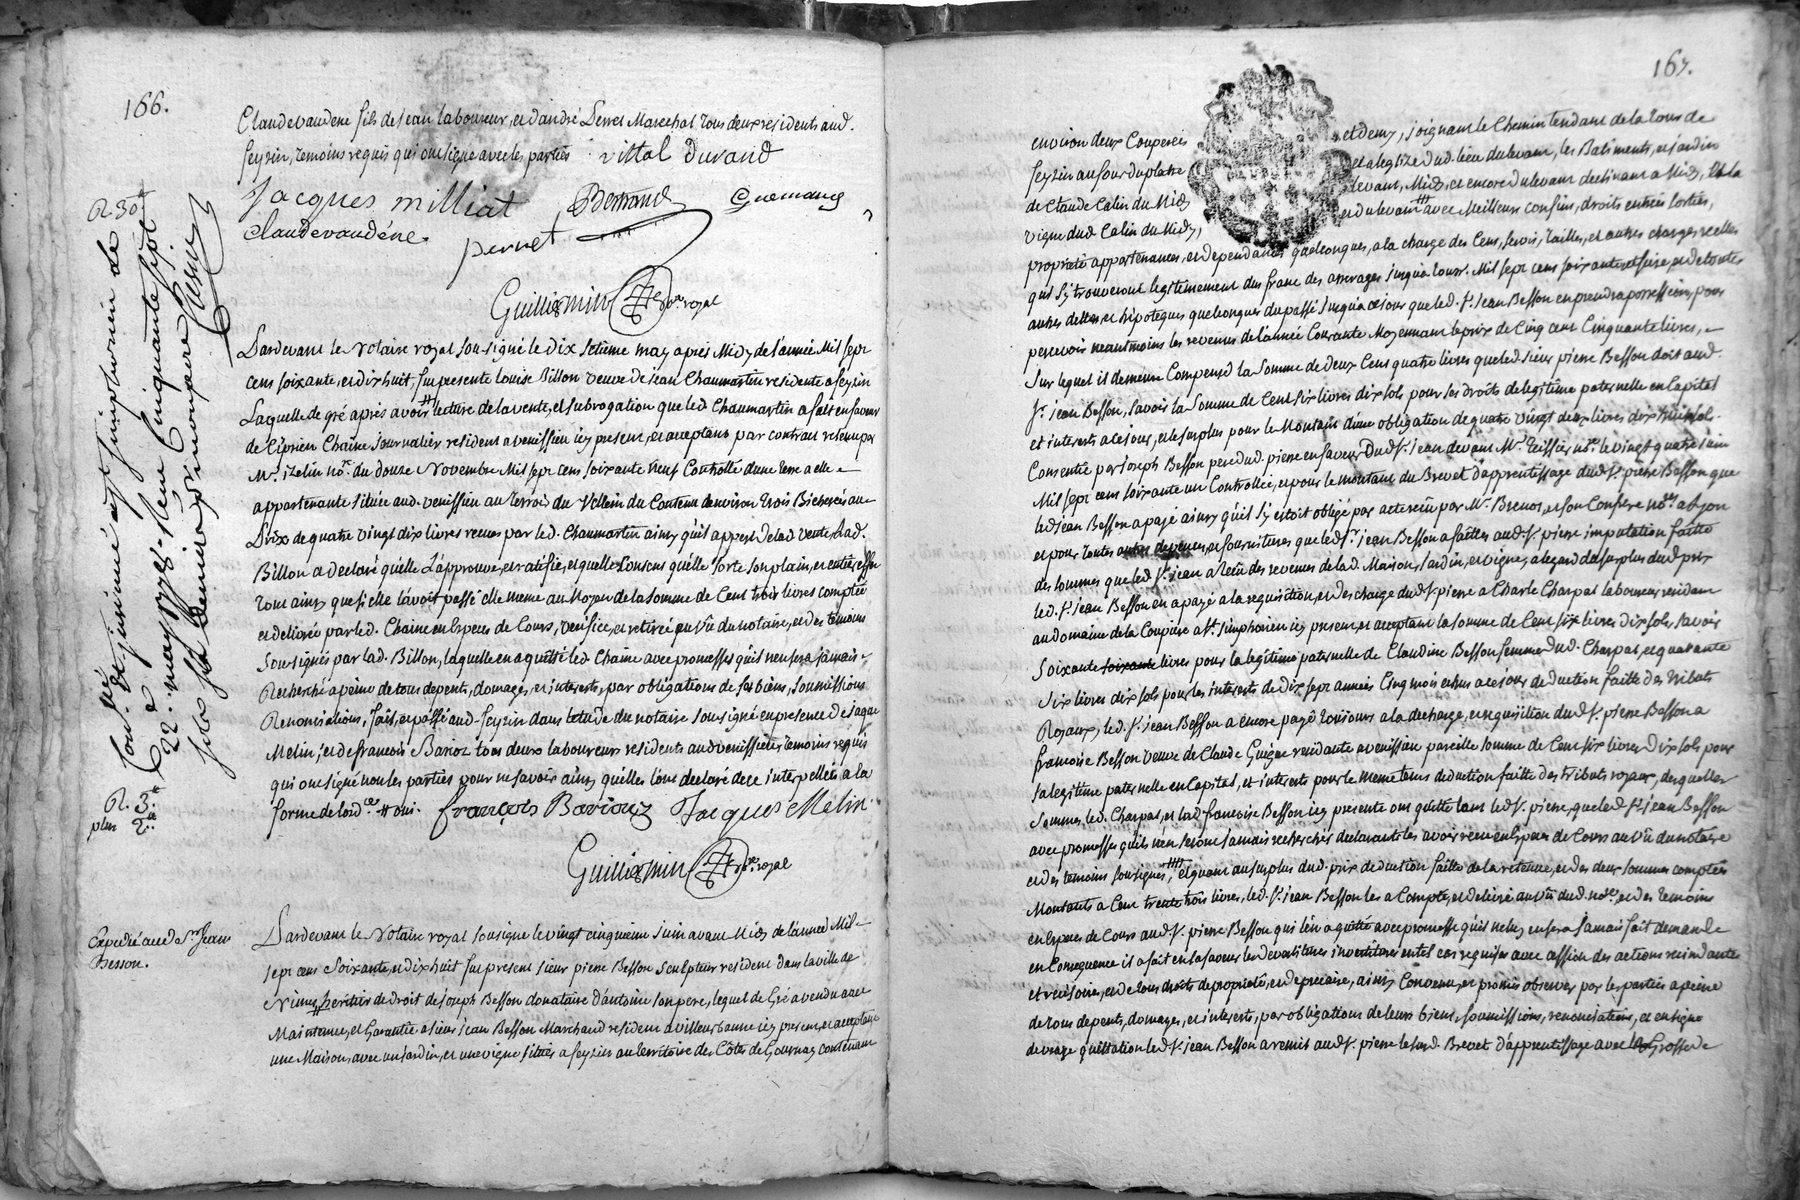 166.
Claudevaudene fils de jean laboureur, et d'andré Perret Marechal tous deux residents aud.
feyzin, temoins requis qui ont signé avec les parties vittal durand
jacques milliat Bertrand Gromang
claudevaudéne perret
Guilliermin nore royal
Pardevant le Notaire royal soussigné le dix setieme may après Midy de l'année Mil sept
cens soixante, et dixhuit, fut presente louise Billon veuve de jean Chaumartin residente a feyzin
Laquelle de gré après avoir # lecture de la vente, et subrogation que led Chaumartin a fait en faveur
de Ciprien Chaîne journalier resident a venissieu icy present, et acceptant par contrat reçeu par
Me. izelin nore. du douze Novembre Mil sept cens soixante neuf Controllé d'une terre a elle
appartenante située aud. venissieu au terroir du Vellein du Contenu denviron trois Bicherées au
Prix de quatre vingt dix livres reçues par led. Chaumartin ainsy qu'il appert de lad vente, Lad.
Billon a declaré quélle L'approuve, et ratifie, et quelle Consent qu'élle sorte son plain, et entier effet
tout ainsy que si elle l'avoit passé elle meme au Moyen de la somme de Cent trois livres comptée
et delivrée par led. Chaine en Especes de Cours, verifiée, et retirée au vû du notaire, et des temoins
soussignés par lad. Billon, laquelle en a quitté led Chaîne avec promesses qu'il n'en sera jamais
Recherché a peine de tous depents, domages, et interests, par obligations de ses biens, soumissions
Renonciations, fait, et passé aud. feyzin dans letude du notaire soussigné en presence de jaque
Melin, et de francois Barioz tous deux laboureur residents aud venissieu, temoins requis
qui ont signé non les parties pour ne savoir ainsy qu'elles l'ont declaré de ce interpellées a la
forme de lord ce. # oui. françois Bariouz Jacques Melin
Guilliermin nore. royal
R. 30s
Conllé. et insinué a st simphorien de
le 22. may 1778. Reçu Cinquante sept
sols six deniers prinompere
R. 3lt
plus 2
Expedié aud sr. Jean
Besson.
Pardevant le Notaire royal soussigné le vingt cinquieme juin avant Midy de l'année Mil
sept cens Soixante, et dixhuit fut present sieur pierre Besson sculpteur resident dans la ville de
Nimes, heritier de droit de joseph Besson donataire d'antoine son pere, lequel de Gré a vendu avec
Maintenue, et Garantie a sieur jean Besson Marchand resident a villeurbanne icy present, et acceptant
une Maison, avec un jardin, et une vigne situés a feyzin au territoire des Côtes de Gournay contenant
167.
environ deux Couperées et demy, joignant le Chemin tendant de la tour de
feyzin au four du platre et a leglize dud. lieu du levant, les Batiments, et jardin
de Claude Calin du Midy levant, Midy, et encore du levant declinant a Midy, et la
vigne dud Calin du Midy, et du levant ## avec Meilleurs confins, droits entrées sorties,
propriété appartenances, et dependances quelconques, a la charge des Cens, servis, tailles, et autres charges reelles
qui s'y trouveront legitimement dus franc des arrerages jusqu'a tous. Mil sept cens soixante, et seize, et de toutes
autres dettes, et hipoteques quelconques du passé jusqu'a ce jour que led. sr. jean Besson en prendra possession, pour
percevoir neantmoins les revenus de l'année Courante Moyennant le prix de Cinq cent Cinquante livres,
sur lequel il demeure Compensé la somme de deux Cens quatre livres que led sieur pierre Besson doit aud.
sr. jean Besson, savoir la somme de Cent six livres dix sols pour ses droits de legitime paternelle en Capital
et interets a ce jour, et le surplus pour le Montant d'une obligation de quatre vingt deux livres dix huit sol.
Consentie par joseph Besson pere dud. pierre en faveur Dud sr. jean devant Me. Teissier, nore. le vingt quatre juin
Mil sept cens soixante un Controllée, et pour le montant du Brevet d'apprentissage dud sr. pierre Besson que
led jean Besson a payé ainsy qu'il s'y etoit obligé par acte reçu par Me. Brenot, et son Confrere nores. a Lyon
et pour toutes autres depences, et fournitures que led sr. jean Besson a faittes aud. sr. pierre imputation faitte
des sommes que led sr. jean a reçu des revenus de lad. Maison, jardin, et vigne, a legard du surplus dud prix
led. sr. jean Besson en a payé a la requisition, et decharge dud sr. pierre a Charle Charpat laboureur resident
au domaine de la Coupiere a st. simphorien icy present, et acceptant la somme de Cent six livres dix sols, savoir
Soixante soixante livres pour la legitime paternelle de Claudine Besson femme dud. Charpat, et quarante
six livres dix sols pour les interets de dix sept années Cinq mois echus a ce jour deduction faitte des tributs
Royaux, led. sr. jean Besson a encore payé toujours a la decharge, et requisition dud sr. pierre Besson a
francoise Besson veuve de Claude Guigue residante a venissieu pareille somme de Cent six livres dix sols pour
sa legitime paternelle en Capital, et interets pour le meme tems deduction faitte des tributs royaux, desquelles
sommes led. Charpat, et lad. francoise Besson icy presente ont quitté tant led sr. pierre, que led sr. jean Besson
avec promesses qu'ils n'en seront jamais recherchés declarant les avoir reçu en Especes de Cours au vû du notaire
et des temoins soussignés, #### et quant au surplus dud. prix deduction faitte de la retenue, et des deux sommes comptées
Montants a Cent trente trois livres, led. sr. jean Besson les a Compté, et delivré au vû dud. nore. et des temoins
en Especes de Cours aud sr. pierre Besson qui l'en a quitté avec promesse qu'il ne luy en sera jamais fait demande
en Consequence il a fait en sa faveur les devestitures investitures en tel cas requises avec cession des actions rescindante
et rescisoire, et de tous droits de propriété, et de precaire, ainsy Convenu, et promis observer par les parties a peine
de tous depents, domages, et interets, par obligations de leurs biens, soumissions, renonciations, et en signe
de vraye quittation led sr. jean Besson a remis aud sr. pierre le susd. Brevet d'apprentissage avec la Grosse de